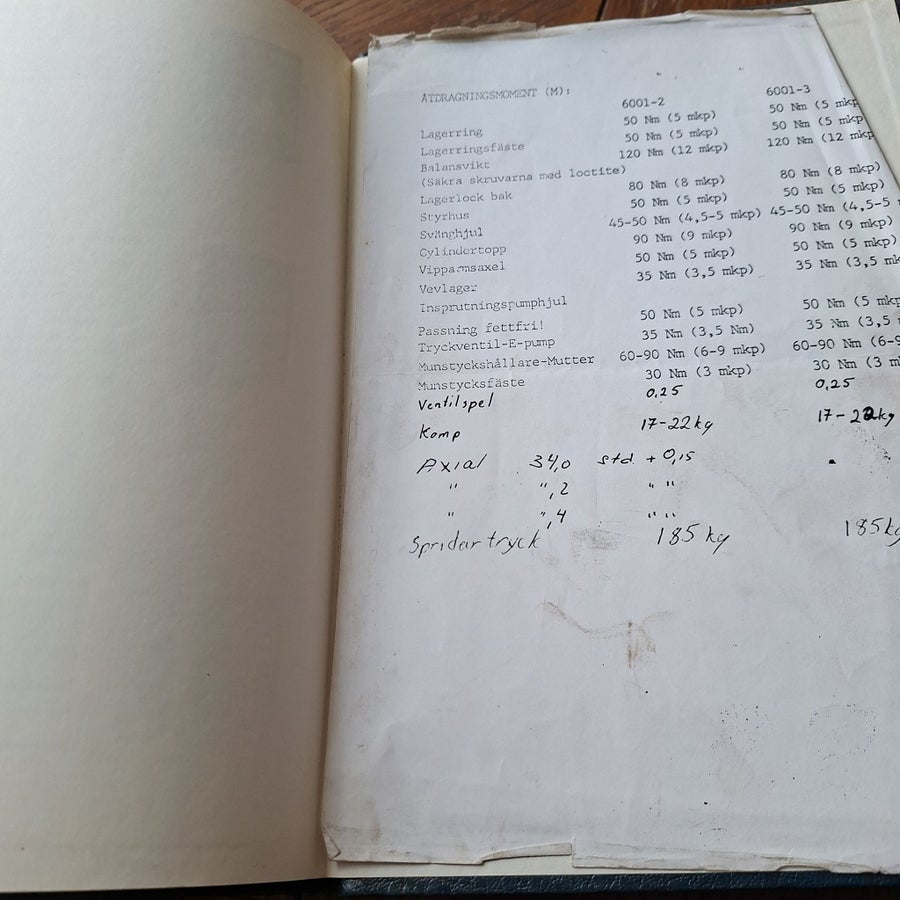 ÅTDRAGNINGSMOMENT (M): 6001-2 6001-3
Lagerring 50 Nm (5 mkp) 50 Nm (5 mkp
Lagerringsfäste 50 Nm (5 mkp) 50 Nm (5 mkp
Balansvikt 120 Nm (12 mkp) 120 Nm (12 mkp
(Säkra skruvarna med loctite)
Lagerlock bak 80 Nm (8 mkp) 80 Nm (8 mkp)
Styrhus 50 Nm (5 mkp) 50 Nm (5 mkp)
Svänghjul 45-50 Nm (4,5-5 mkp) 45-50 Nm (4,5-5
Cylindertopp 90 Nm (9 mkp) 90 Nm (9 mkp)
Vipparmsaxel 50 Nm (5 mkp) 50 Nm (5 mkp)
Vevlager 35 Nm (3,5 mkp) 35 Nm (3,5 mk
Insprutningspumphjul
Passning fettfri! 50 Nm (5 mkp) 50 Nm (5 mkp
Tryckventil-E-pump 35 Nm (3,5 Nm) 35 Nm (3,5
Munstyckshållare-Mutter 60-90 Nm (6-9 mkp) 60-90 Nm (6-9
Munstycksfäste 30 Nm (3 mkp) 30 Nm (3 mk
Ventilspel 0,25 0,25
Komp 17-22kg 17-22kg
Axial 34,0 std + 0,15
" ",2 " "
" ",4 " "
Spridartryck 185 kg 185kg